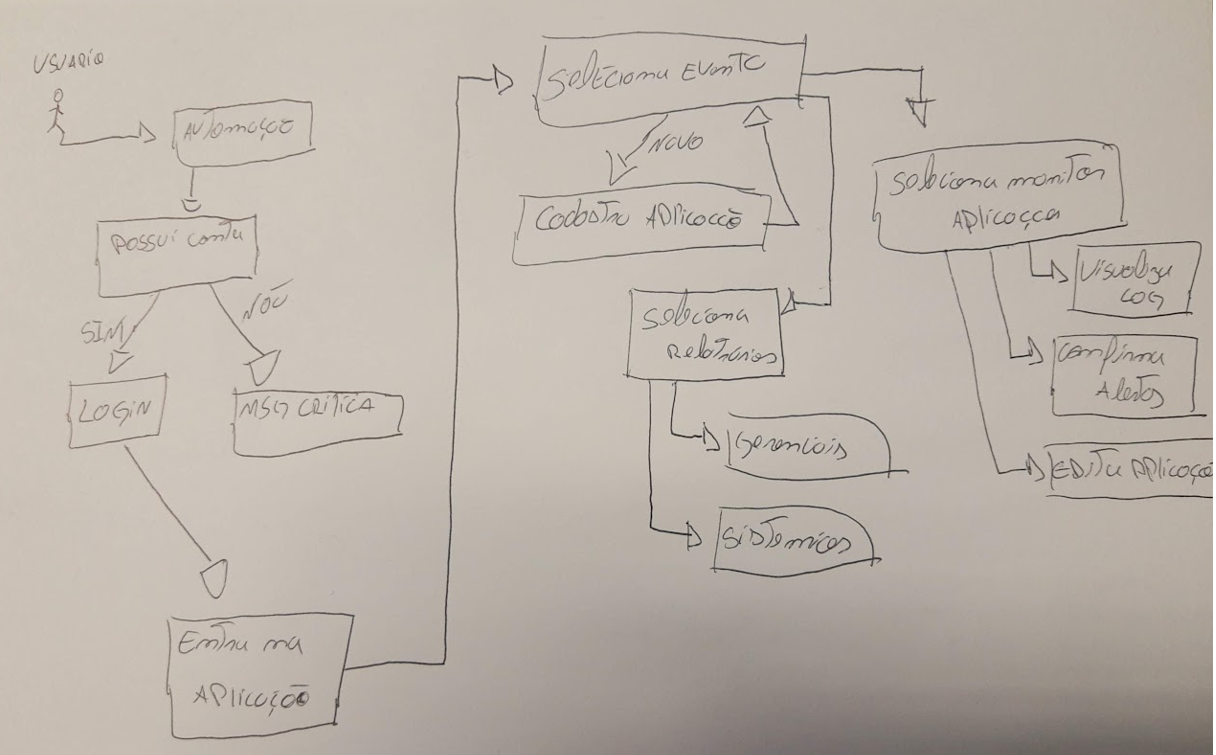 USUARIO
AUTOMAÇÃO
POSSUI CONTA
SIM
NÃO
LOGIN
MSG CRITICA
ENTRA NA
APLICAÇÃO
SELECIONA EVENTO
NOVO
CADASTRA APLICACÃO
SELECIONA
RELATÓRIOS
GERENCIAIS
SISTÊMICOS
SELECIONA MONITOR
APLICAÇÇA
VISUALIZA
LOG
CONFIRMA
ALERTAS
EDITA APLICAÇÃO